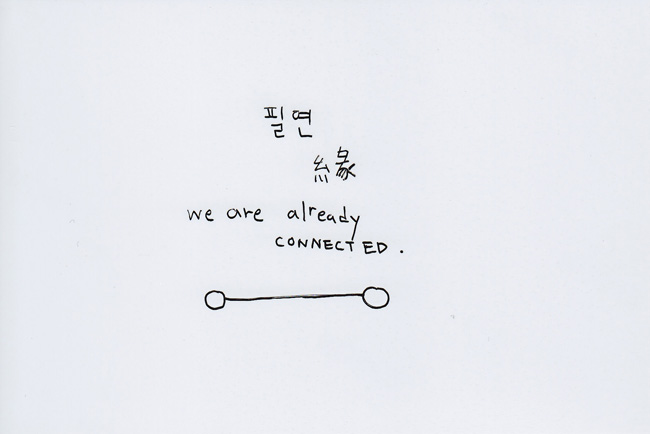 필연
緣
we are already
CONNECTED.